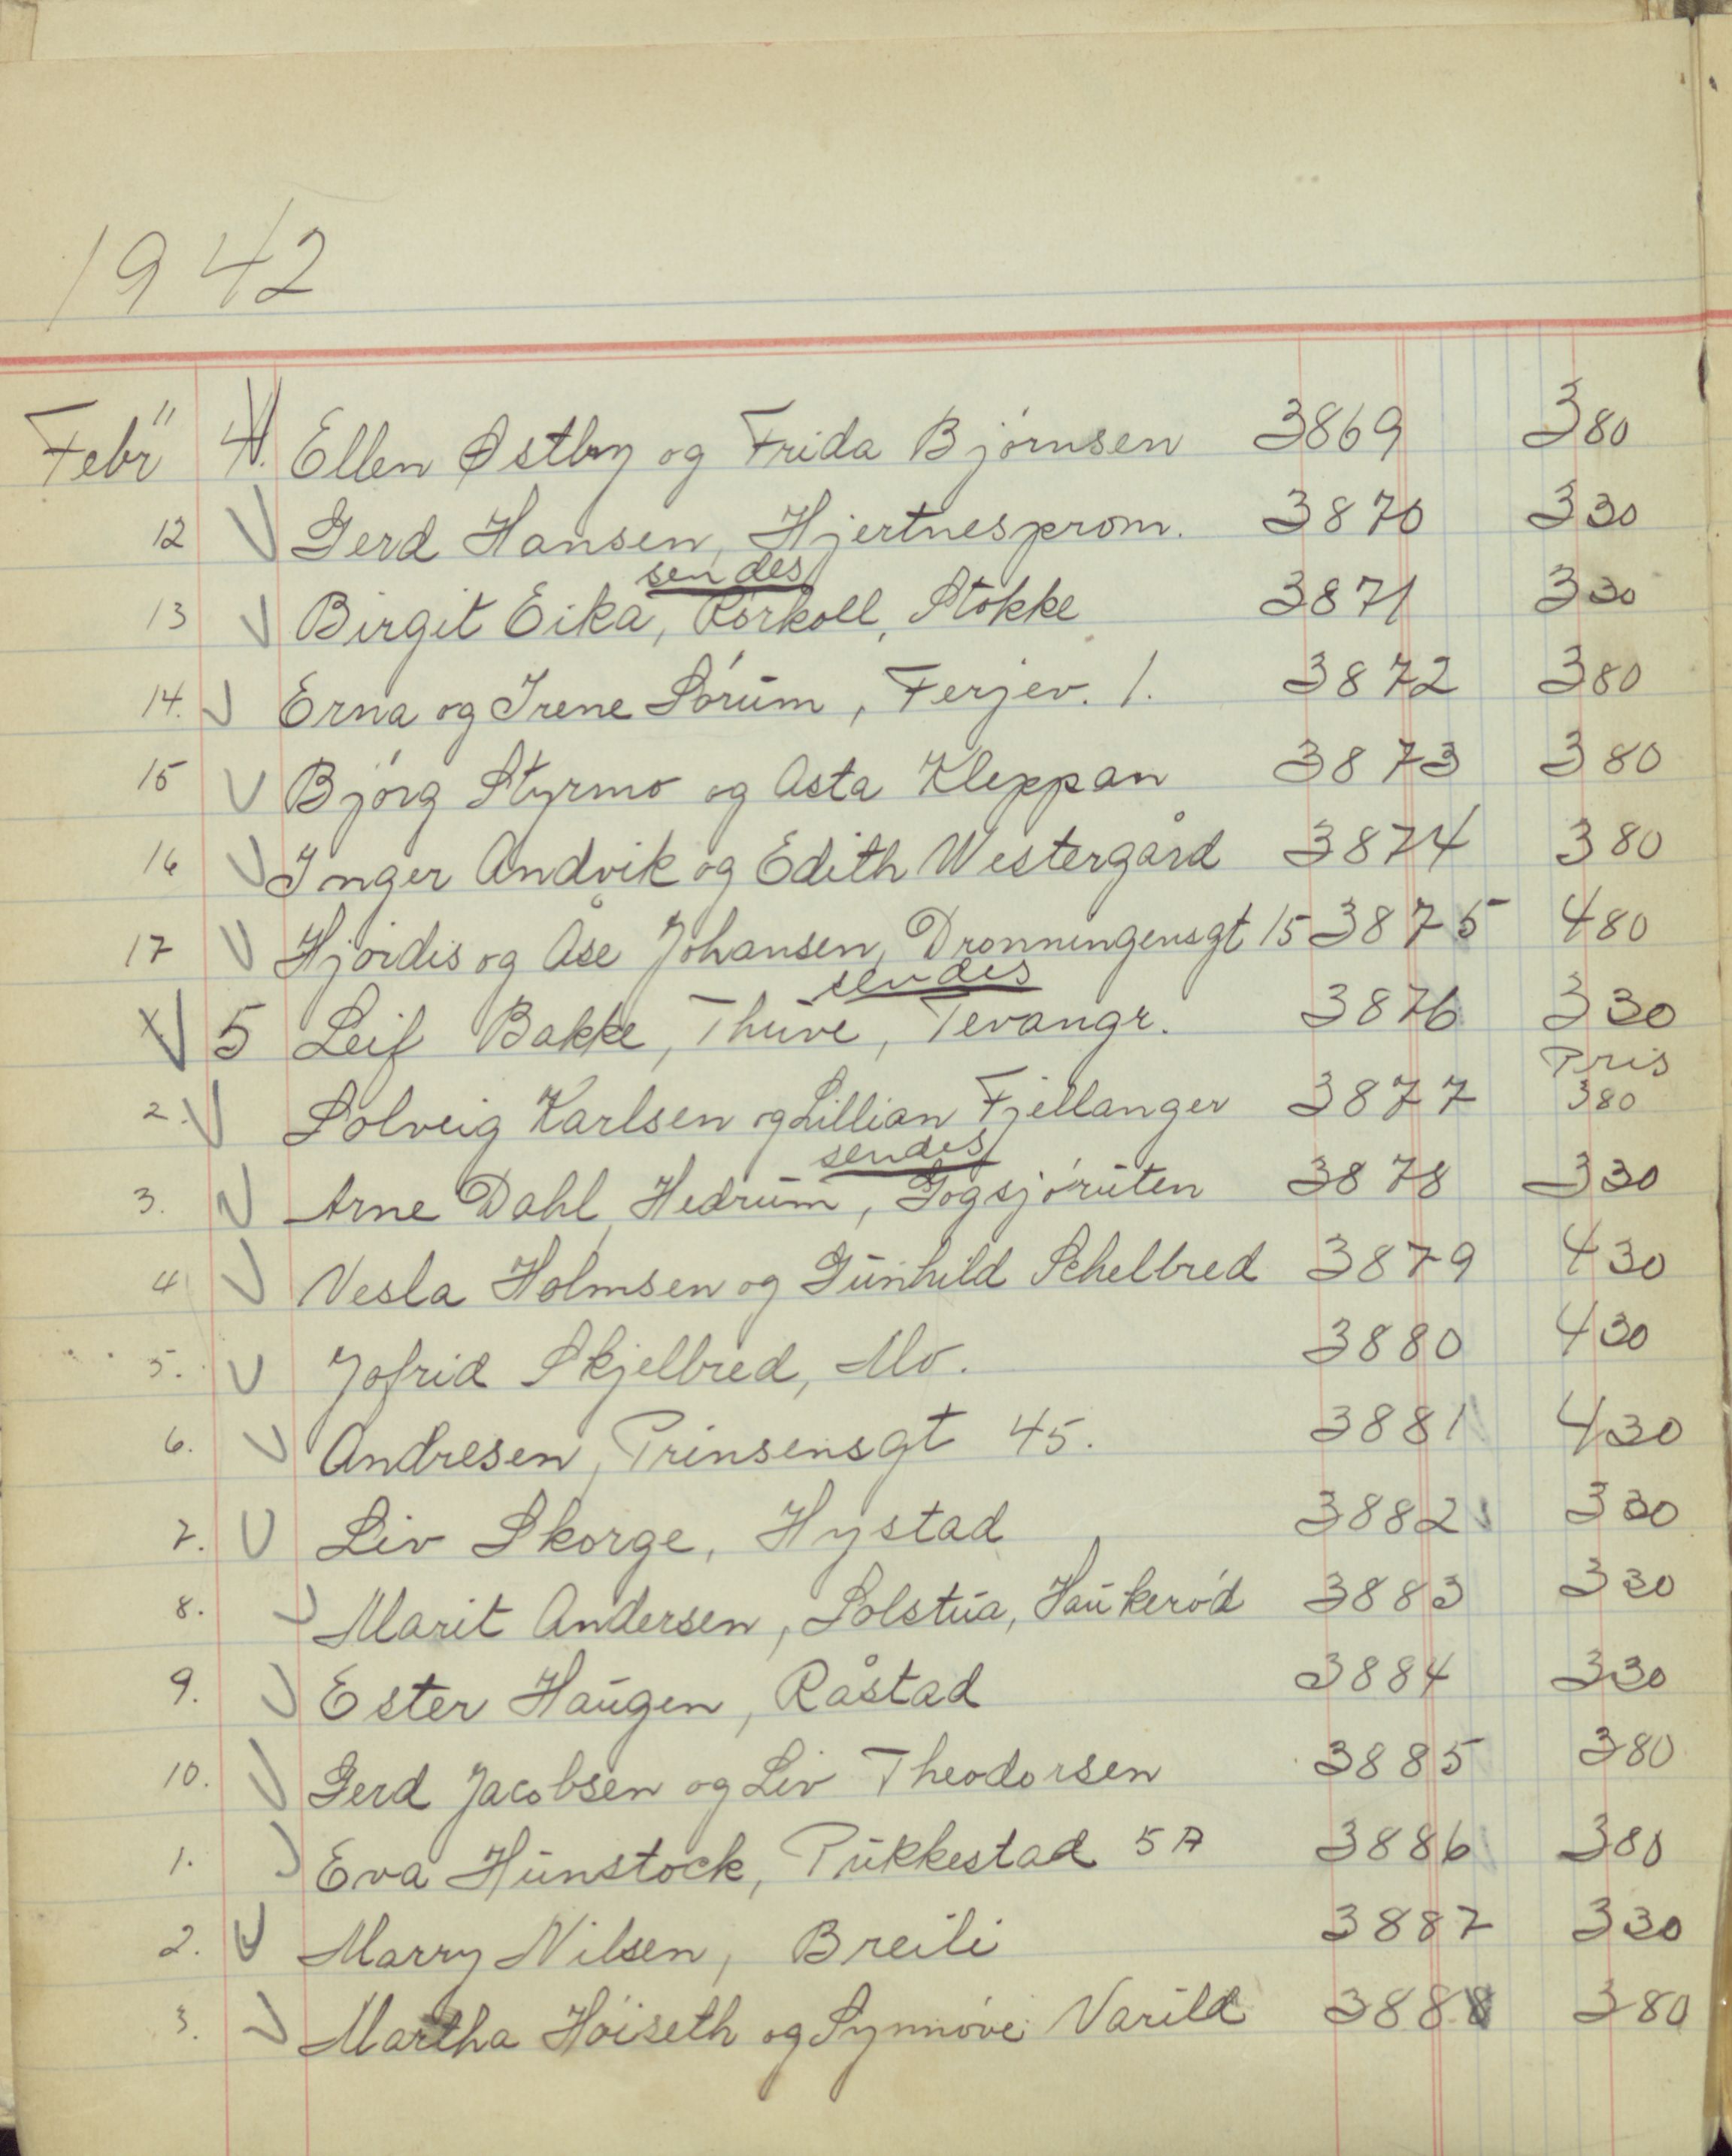 1942
Febr" 4. Ellen Østby og Frida Bjórnsen 3869 380
12 Gerd Hansen, Hjertnesprom. 3870 330
sendes
13 Birgit Eika, Rórkoll, Stokke 3871 330
14. Erna og Irene Sórum, Ferjev. 1. 3872 380
15 Bjórg Styrmo og Asta Kleppan 3873 380
16 Inger Andvik og Edith Westergård 3874 380
17 Hjórdis og Åse Johansen, Dronningensgt 15 3875 480
sendes
5 Leif Bakke, Thuve, Tevangr. 3876 330
Pris
2. Solveig Karlsen og Lillian Fjellanger 3877 380
sendes
3. Arne Dahl, Hedrum, Gogsjóruten 3878 330
4 Vesla Holmsen og Gunhild Schelbred 3879 430
5. Jofrid Skjelbred, Mo. 3880 430
6. Andresen, Prinsensgt 45. 3881 430
7. Liv Skorge, Hystad 3882 330
8. Marit Andersen, Solstua, Haukeród 3883 330
9. Ester Haugen, Råstad 3884 330
10. Gerd Jacobsen og Liv Theodorsen 3885 380
1. Eva Hunstock, Pukkestad 5A 3886 380
2. Marry Nilsen, Breili 3887 330
3. Martha Hóiseth og Synnóve Varild 3888 380